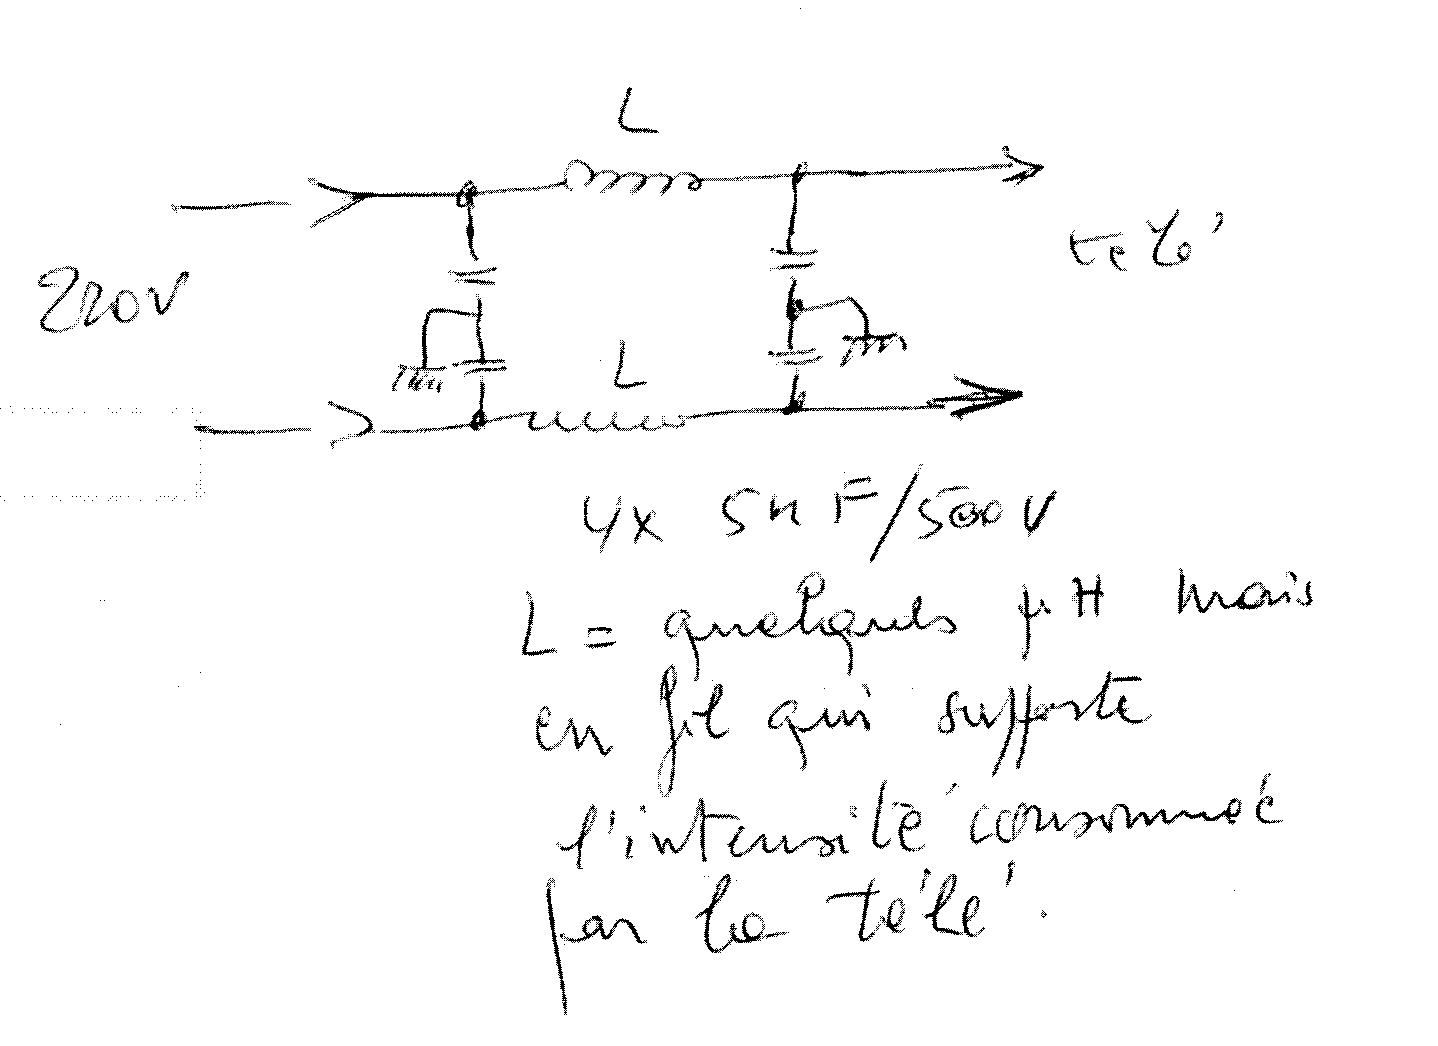 L
220V
télé
L
4x 5nF/500V
L = quelques µH mais
en fil qui supporte
l'intensité consommée
par la télé.